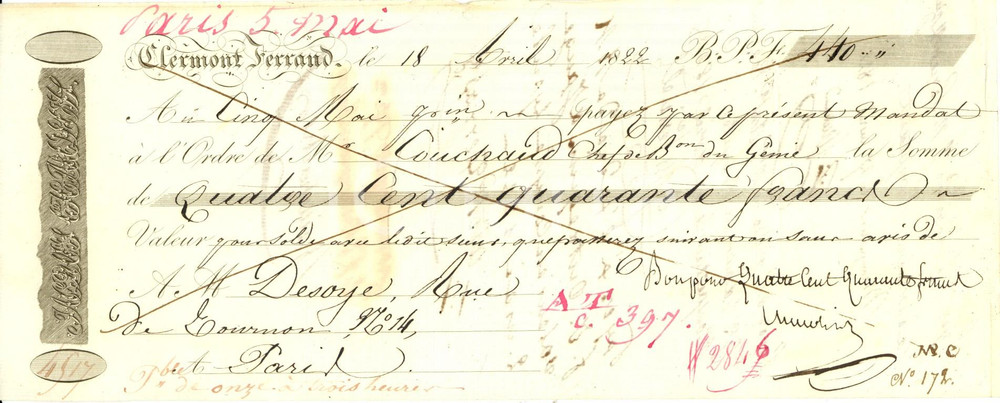 Paris 5 Mai
Clermont Ferrand. le 18 Avril 1822 B.P.F. 440 "
Au Cinq Mai proin payez par ce présent Mandat
à l'Ordre de Mr Couchaud Chef de Bon du Génie la Somme
de Quatre Cent quarante francs
Valeur pour Solde avec ledit sieur, que passerez suivant ou sans avis de
A Mr Desoye, Rue
Bon pour Quatre Cent Quarante francs
De Tournon, No 14,
A T
c. 397.
Paris
2846
No. C
No 172.
4517
de onze à trois heures